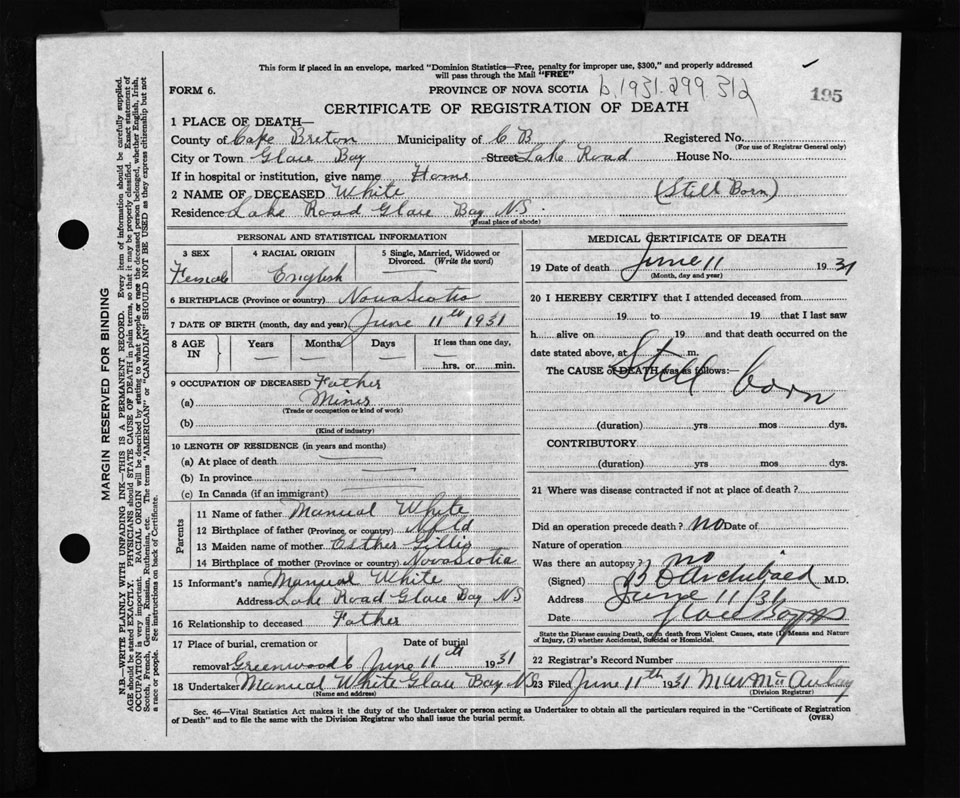 This form if placed in an envelope, marked "Dominion Statistics—Free, penalty for improper use, $300," and properly addressed
will pass through the Mail "FREE"
FORM 6.
PROVINCE OF NOVA SCOTIA b.1931.299.312
195
CERTIFICATE OF REGISTRATION OF DEATH
1 PLACE OF DEATH—
County of Cape Breton Municipality of C B Registered No.
(For use of Registrar General only)
City or Town Glace Bay Street Lake Road House No.
If in hospital or institution, give name Home
2 NAME OF DECEASED White (Still Born)
Residence Lake Road Glace Bay NS.
(Usual place of abode)
PERSONAL AND STATISTICAL INFORMATION
3 SEX 4 RACIAL ORIGIN 5 Single, Married, Widowed or Divorced. (Write the word)
Female English
6 BIRTHPLACE (Province or country) Nova Scotia
7 DATE OF BIRTH (month, day and year) June 11th 1931
8 AGE IN Years Months Days If less than one day,
hrs. or min.
9 OCCUPATION OF DECEASED Father
(a) Miner
(Trade or occupation or kind of work)
(b)
(Kind of industry)
10 LENGTH OF RESIDENCE (in years and months)
(a) At place of death
(b) In province
(c) In Canada (if an immigrant)
Parents
11 Name of father Manual White
12 Birthplace of father (Province or country) Nfld
13 Maiden name of mother Esther Gillis
14 Birthplace of mother (Province or country) Nova Scotia
15 Informant's name Manual White
Address Lake Road Glace Bay NS
16 Relationship to deceased Father
17 Place of burial, cremation or Date of burial
removal Greenwood C June 11th 1931
18 Undertaker Manual White Glace Bay NS
(Name and address)
MEDICAL CERTIFICATE OF DEATH
19 Date of death June 11 1931
(Month, day and year)
20 I HEREBY CERTIFY that I attended deceased from
19 to 19 that I last saw
h alive on 19 and that death occurred on
date stated above, at m.
The CAUSE of DEATH was as follows:—
Still born
(duration) yrs mos dys.
CONTRIBUTORY
(duration) yrs mos dys.
21 Where was disease contracted if not at place of death?
Did an operation precede death? no Date of
Nature of operation
Was there an autopsy? no
(Signed) Archibald M.D.
Address June 11/31
Date Glace Bay NS
State the Disease causing Death, or, in death from Violent Causes, state (1) Means and Nature
of Injury, (2) whether Accidental, Suicidal or Homicidal.
22 Registrar's Record Number
23 Filed June 11th 1931
(Division Registrar)
Sec. 46—Vital Statistics Act makes it the duty of the Undertaker or person acting as Undertaker to obtain all the particulars required in the "Certificate of Registration
of Death" and to file the same with the Division Registrar who shall issue the burial permit. (OVER)
MARGIN RESERVED FOR BINDING
N.B.—WRITE PLAINLY WITH UNFADING INK—THIS IS A PERMANENT RECORD. Every item of information should be carefully supplied.
AGE should be stated EXACTLY. PHYSICIANS should STATE CAUSE OF DEATH in plain terms, so that it may be properly classified. Exact statement of
OCCUPATION is very important. RACIAL ORIGIN will be described by stating to what people or race the deceased person belonged, whether English, Irish,
Scotch, French, German, Russian, Ruthenian, etc. The terms "AMERICAN" or "CANADIAN" SHOULD NOT BE USED as they express citizenship but not
a race or people. See instructions on back of Certificate.